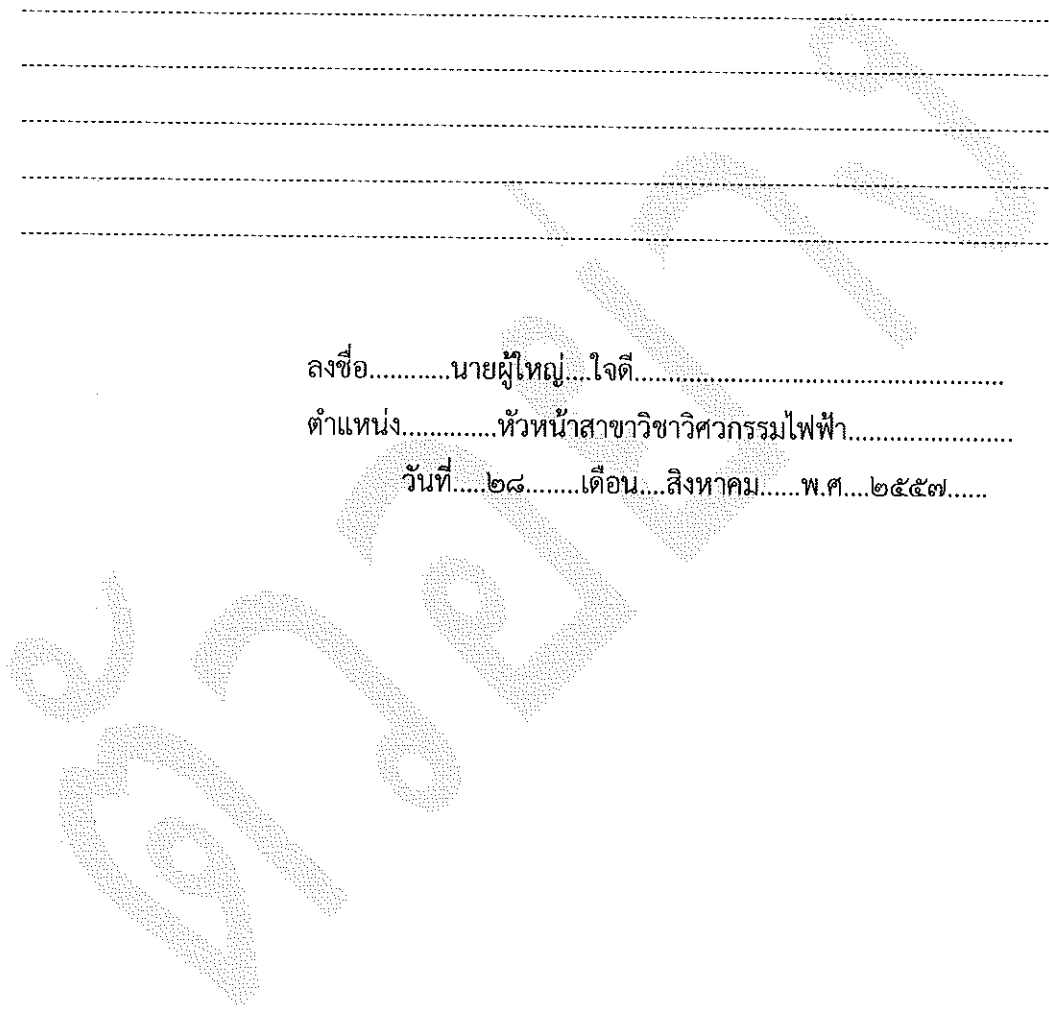 ลงชื่อ............นายผู้ใหญ่....ใจดี.......................................................
ตำแหน่ง..............หัวหน้าสาขาวิชาวิศวกรรมไฟฟ้า........................
วันที่.....๒๘........เดือน....สิงหาคม......พ.ศ....๒๕๕๗......
ตัวอย่าง